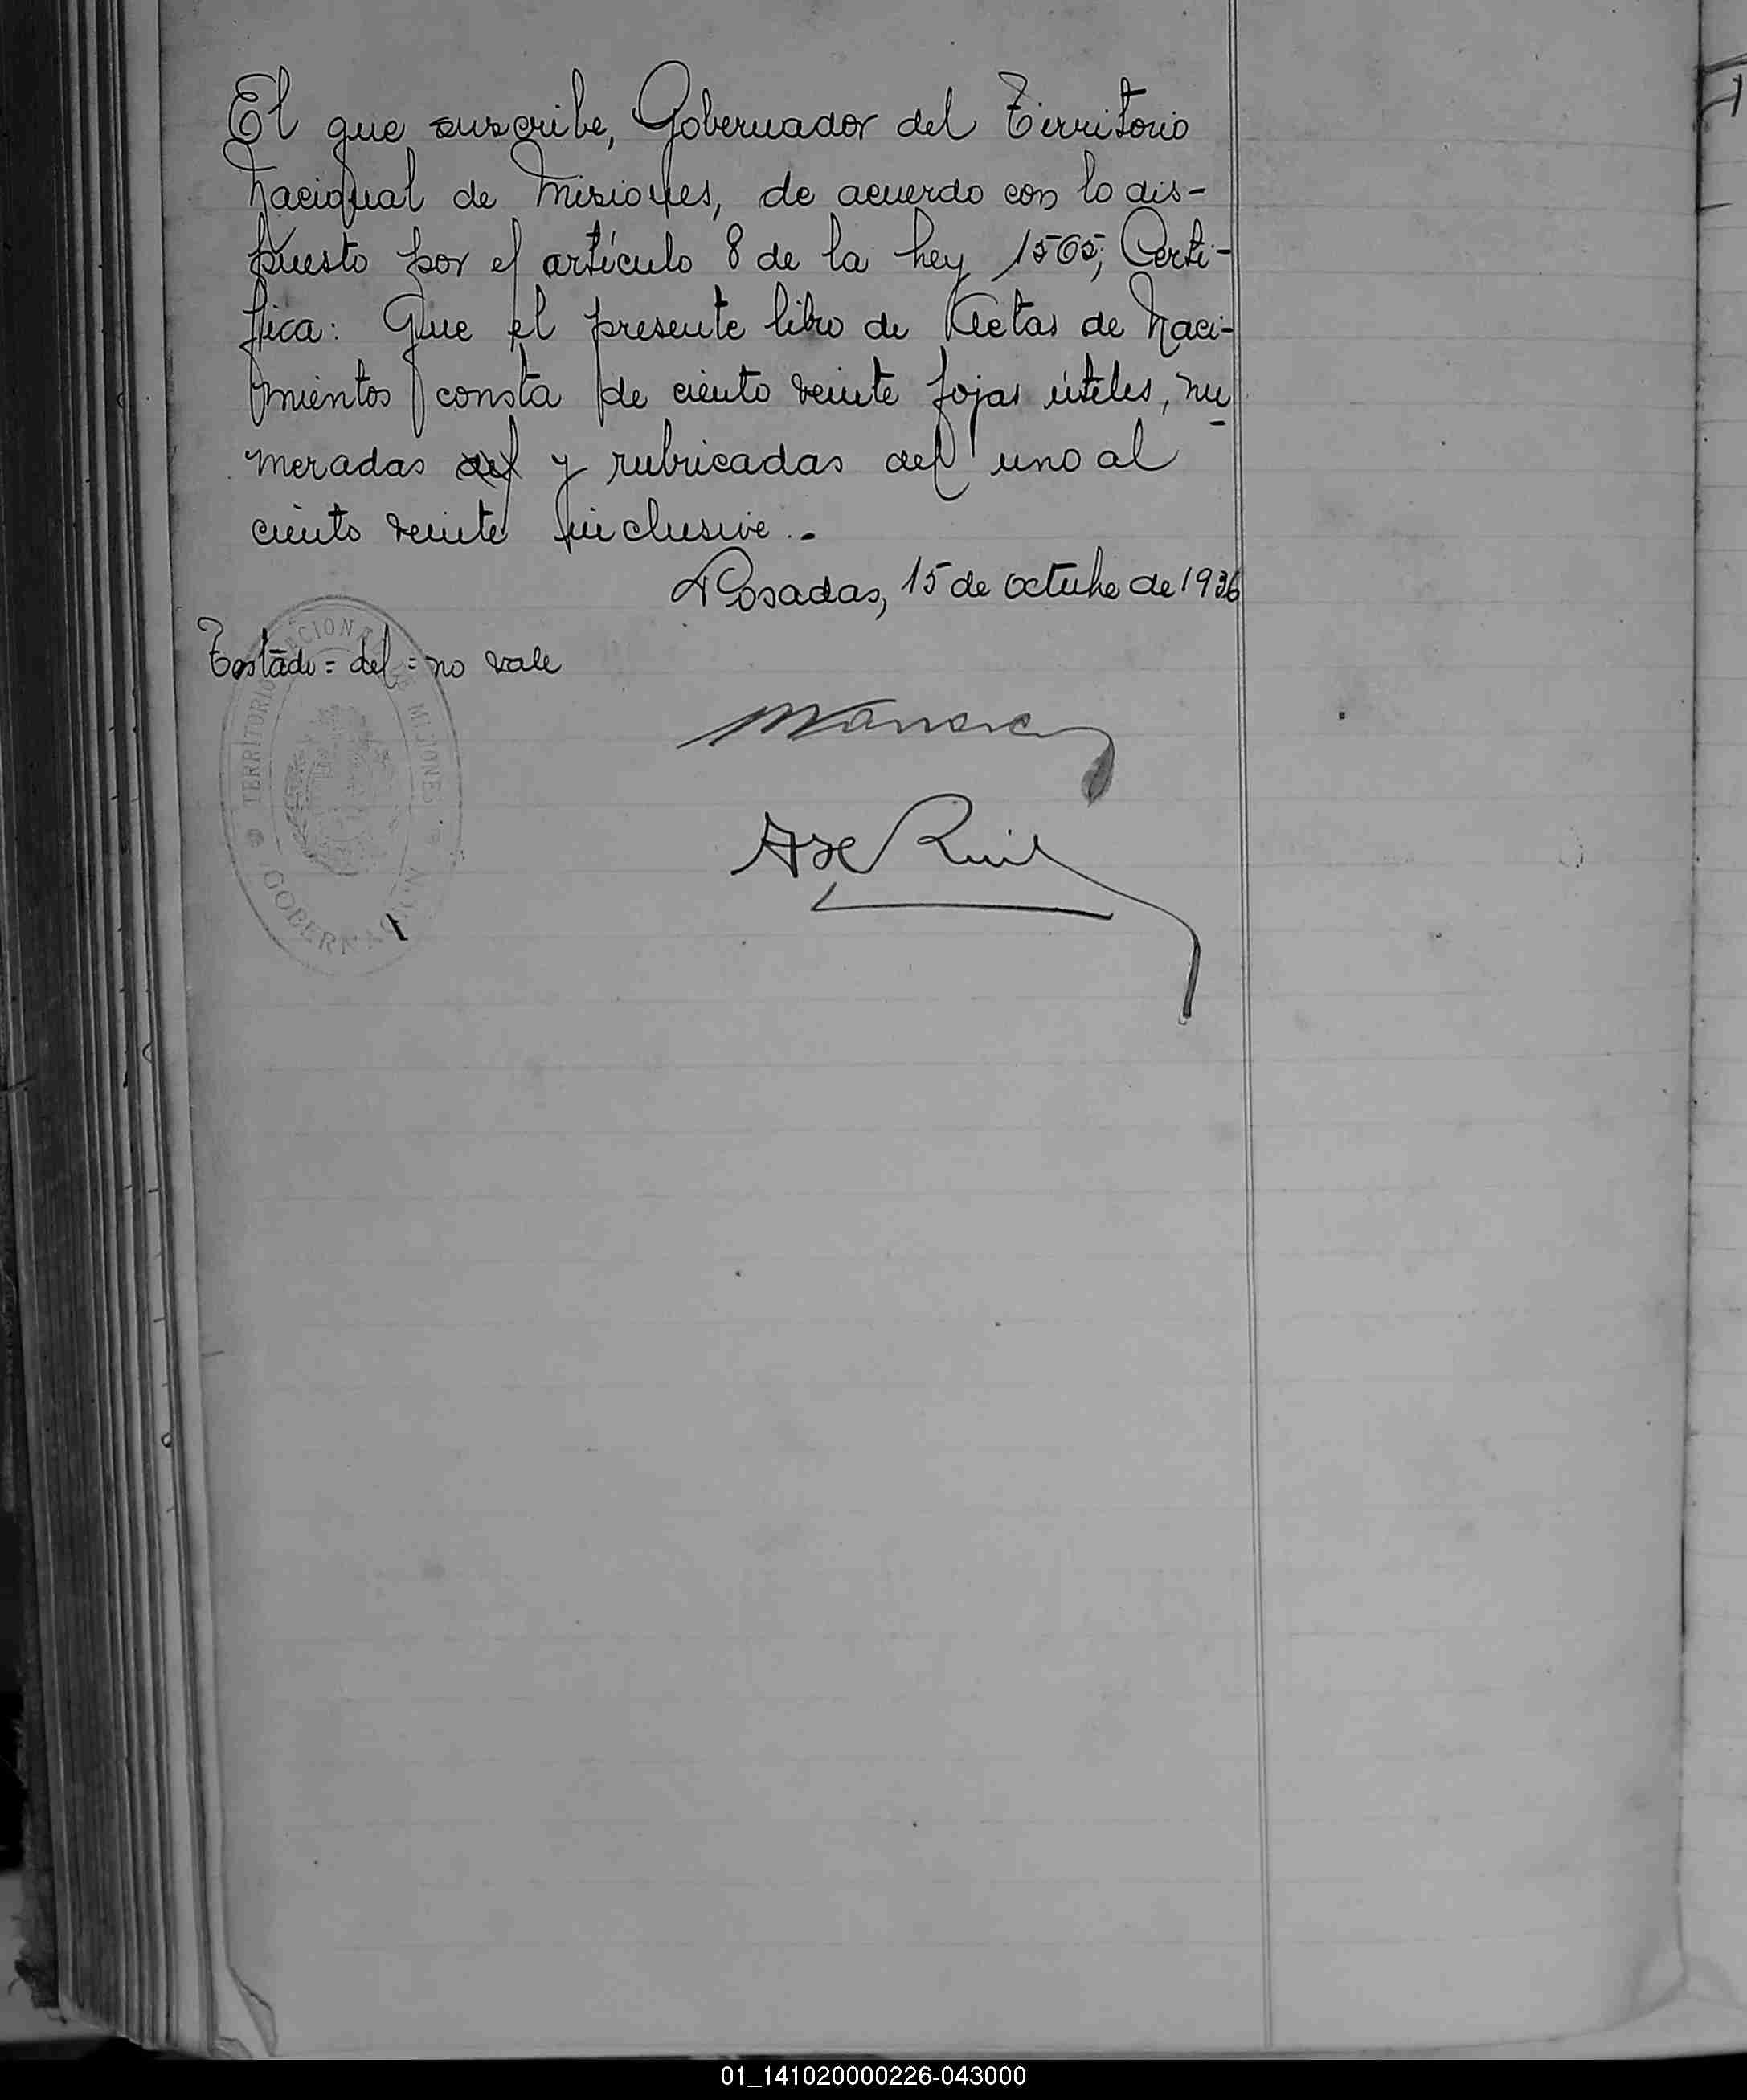 El que suscribe, Gobernador del Territorio
Nacional de Misiones, de acuerdo con lo dis-
puesto por el artículo 8 de la Ley 1565; Certi-
fica: Que el presente libro de Actas de Naci-
mientos consta de ciento veinte fojas útiles, nu
meradas del y rubricadas del uno al
ciento veinte inclusive.-
Posadas, 15 de octubre de 1936
Testado = del = no vale
TERRITORIO NACIONAL DE MISIONES
GOBERNACION
01_141020000226-043000